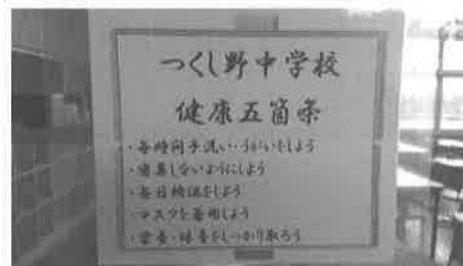 つくし野中学校
健康五箇条
・毎時間手洗い・うがいをしよう
・密集しないようにしよう
・毎日検温をしよう
・マスクを着用しよう
・栄養・休養をしっかり取ろう